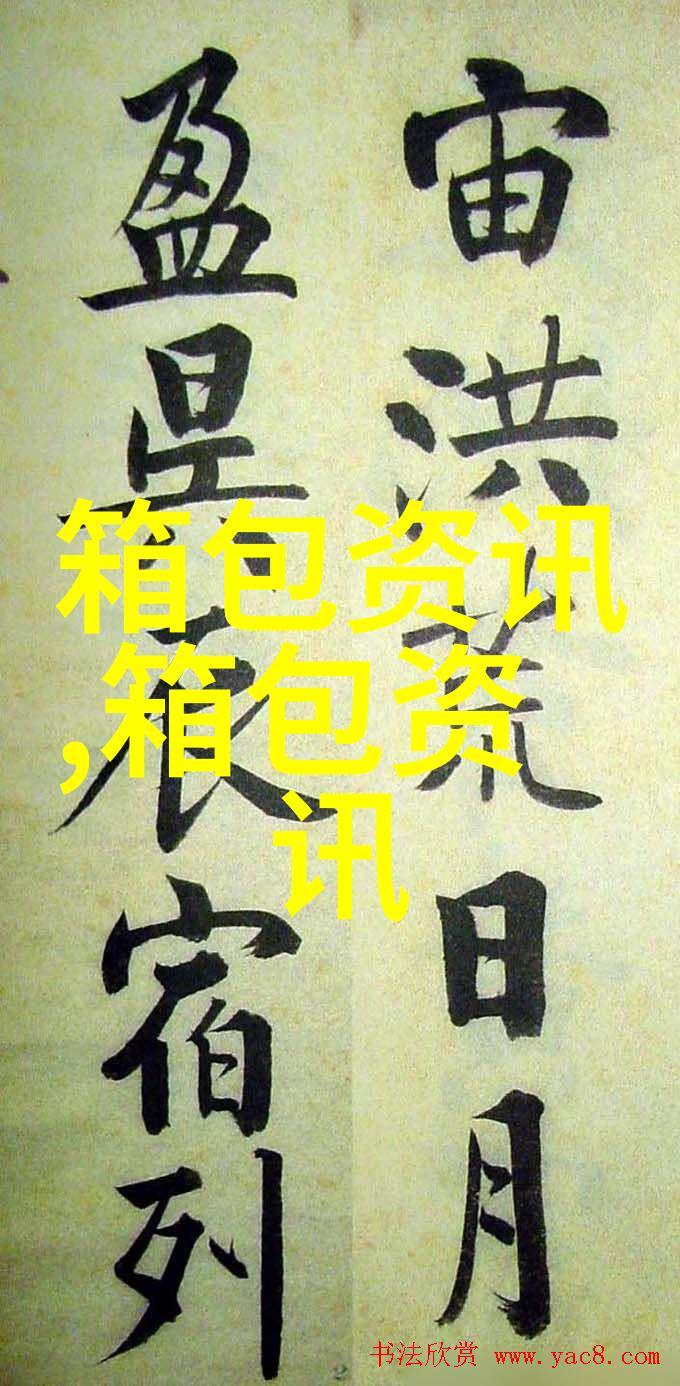 宙洪荒日月
盈昃辰宿列
箱包资讯
,箱包资
讯
书法欣赏 www.yac8.com